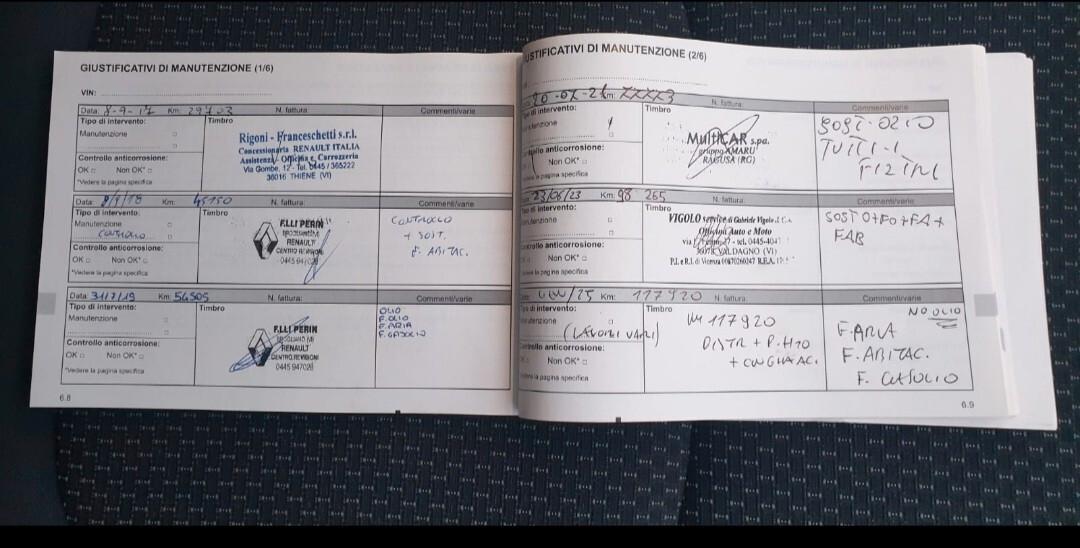 GIUSTIFICATIVI DI MANUTENZIONE (1/6)
VIN:
Data: 8-9-17 Km: 29703 N. fattura: Commenti/varie
Tipo di intervento: Timbro
Manutenzione
Controllo anticorrosione:
OK Non OK*
*Vedere la pagina specifica
Rigoni - Franceschetti s.r.l.
Concessionaria RENAULT ITALIA
Assistenza Officina e Carrozzeria
Via Gombe, 12 - Tel. 0445/365222
36016 THIENE (VI)
Data: 8/9/18 Km: 45150 N. fattura: Commenti/varie
Tipo di intervento: Timbro
Manutenzione
CONTROLLO
Controllo anticorrosione:
OK Non OK*
*Vedere la pagina specifica
F.LLI PERIN
RENAULT
CENTRO REVISIONI
0445 947028
CONTROLLO
+ SOST.
F. ABITAC.
Data: 31/7/19 Km: 54505 N. fattura: Commenti/varie
Tipo di intervento: Timbro
Manutenzione
Controllo anticorrosione:
OK Non OK*
*Vedere la pagina specifica
F.LLI PERIN
RENAULT
CENTRO REVISIONI
0445 947028
OLIO
F. OLIO
F. ARIA
F. GASOLIO
6.8
GIUSTIFICATIVI DI MANUTENZIONE (2/6)
20-07-21 Km: N. fattura: Commenti/varie
Tipo di intervento: Timbro
Manutenzione
Controllo anticorrosione:
Non OK*
*Vedere la pagina specifica
MultiCAR s.p.a.
gruppo XMARU
RAGUSA (RG)
SOST. OLIO
TUTTI I
FILTRI
23/06/23 Km: 98 265 N. fattura: Commenti/varie
Tipo di intervento: Timbro
Manutenzione
Controllo anticorrosione:
Non OK*
*Vedere la pagina specifica
VIGOLO service di Gabriele Vigolo & C.
Officina Auto e Moto
VALDAGNO (VI)
SOST O+FO+FA+
FAB
/25 Km: 117920 N. fattura: Commenti/varie
Tipo di intervento: Timbro
Manutenzione
(LAVORI VARI)
Controllo anticorrosione:
OK Non OK*
*Vedere la pagina specifica
KM 117920
DISTR + P. H2O
+ CINGHIA AC.
NO OLIO
F. ARIA
F. ABITAC.
F. GASOLIO
6.9